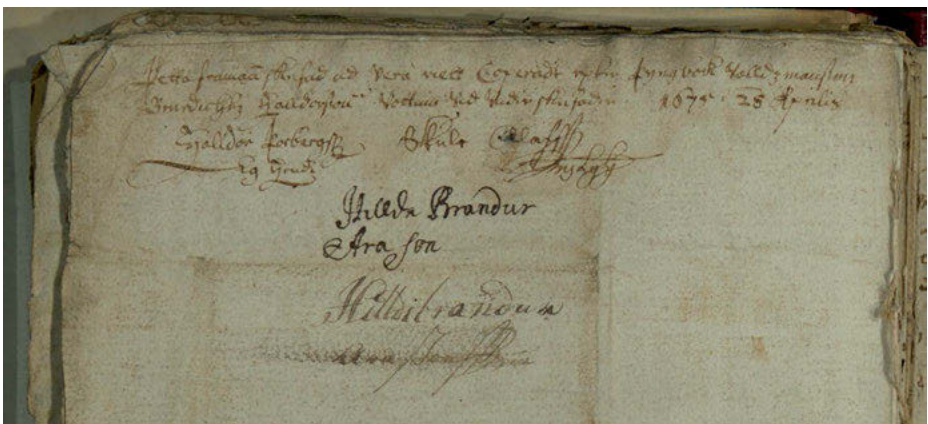 Þetta framan skrifad ad Vera riett Coperadt epter þyngbook Valldzmansins
Benedichtz Halldorssonar Vottum Vid Vnderskrifader 1675. 28 Aprilis
Halldör Þorbergß Skule Olafß
Eg hende
Hilldebrandur
Ara son
Hilldibrandur
Ara